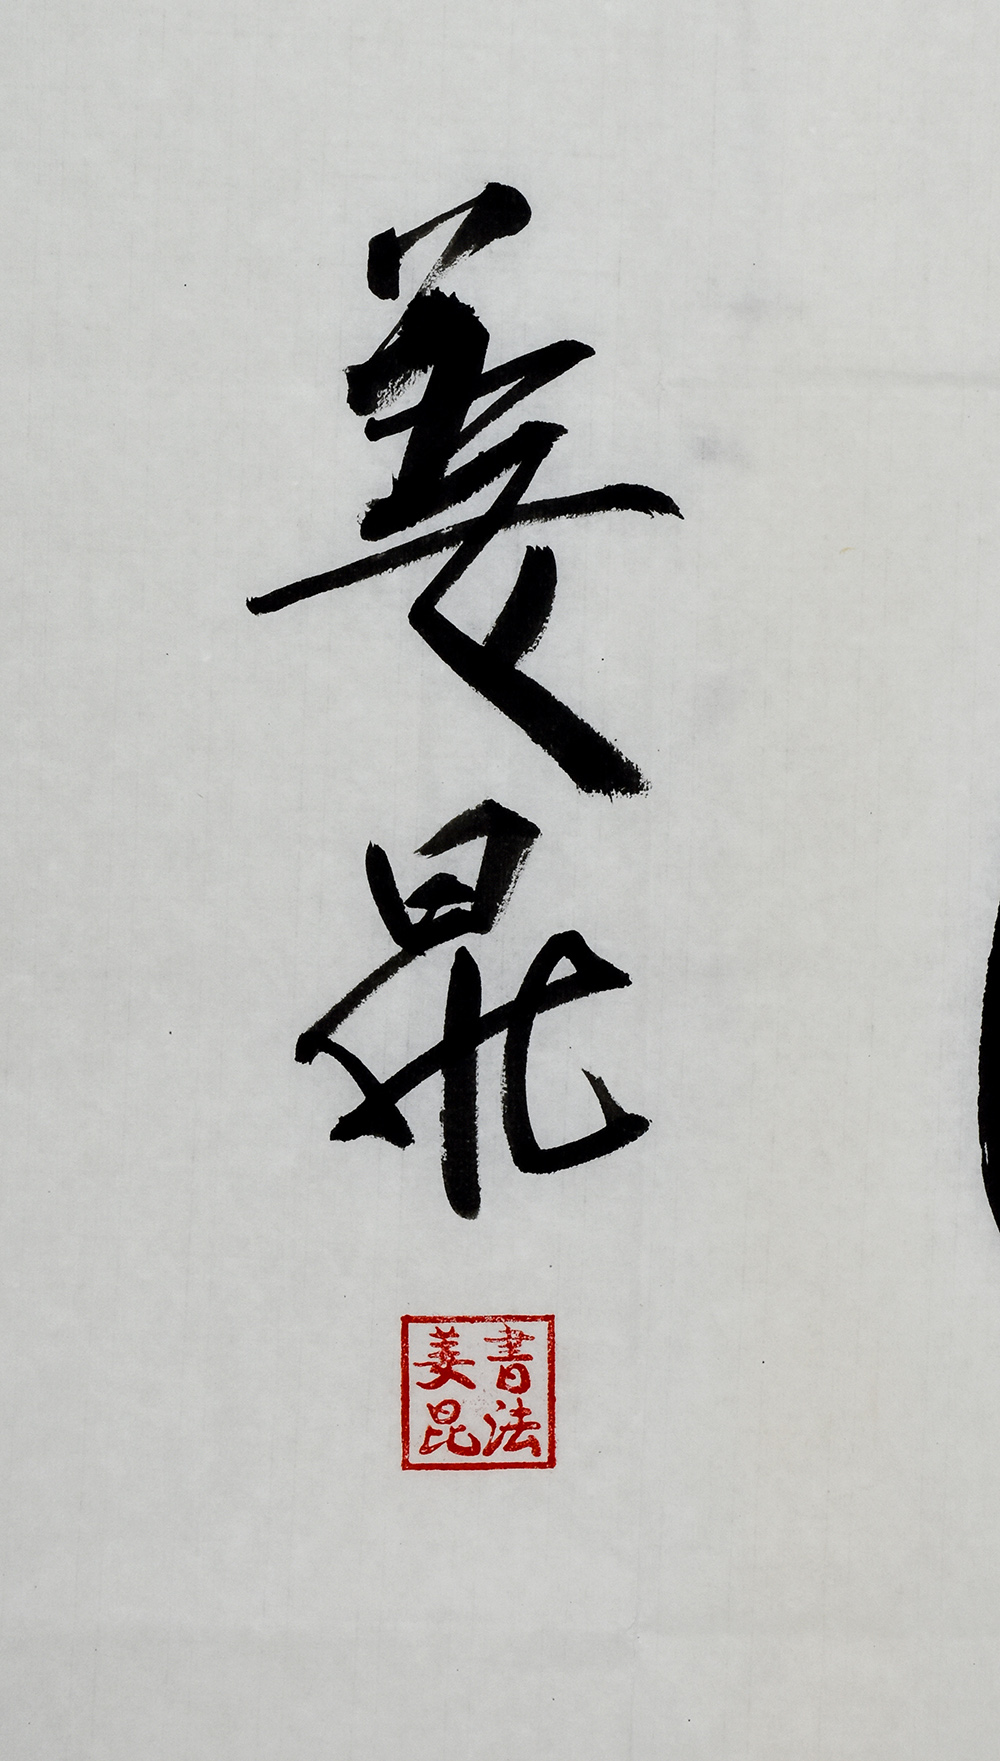 姜昆
書法
姜昆